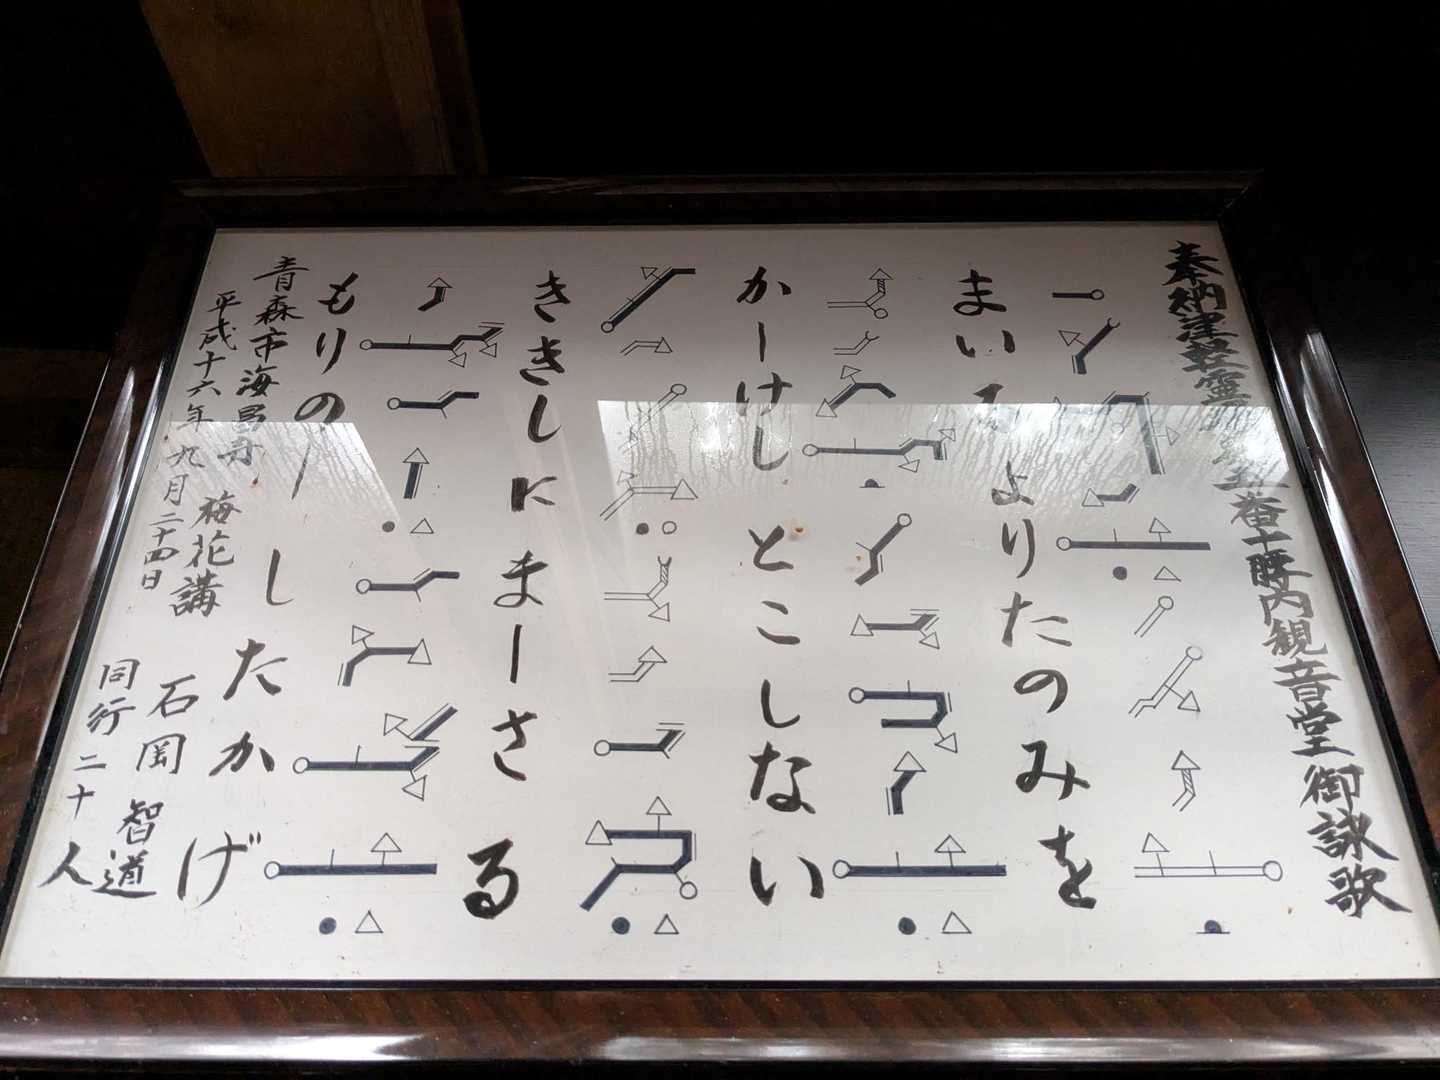 奉納津軽霊 番十腰内観音堂御詠歌
まいる よりたのみを
かーけし とこしない
ききしに まーさる
もりのー したかげ
青森市海昌寺 梅花講 石岡智道
平成十六年九月二十四日 同行二十人